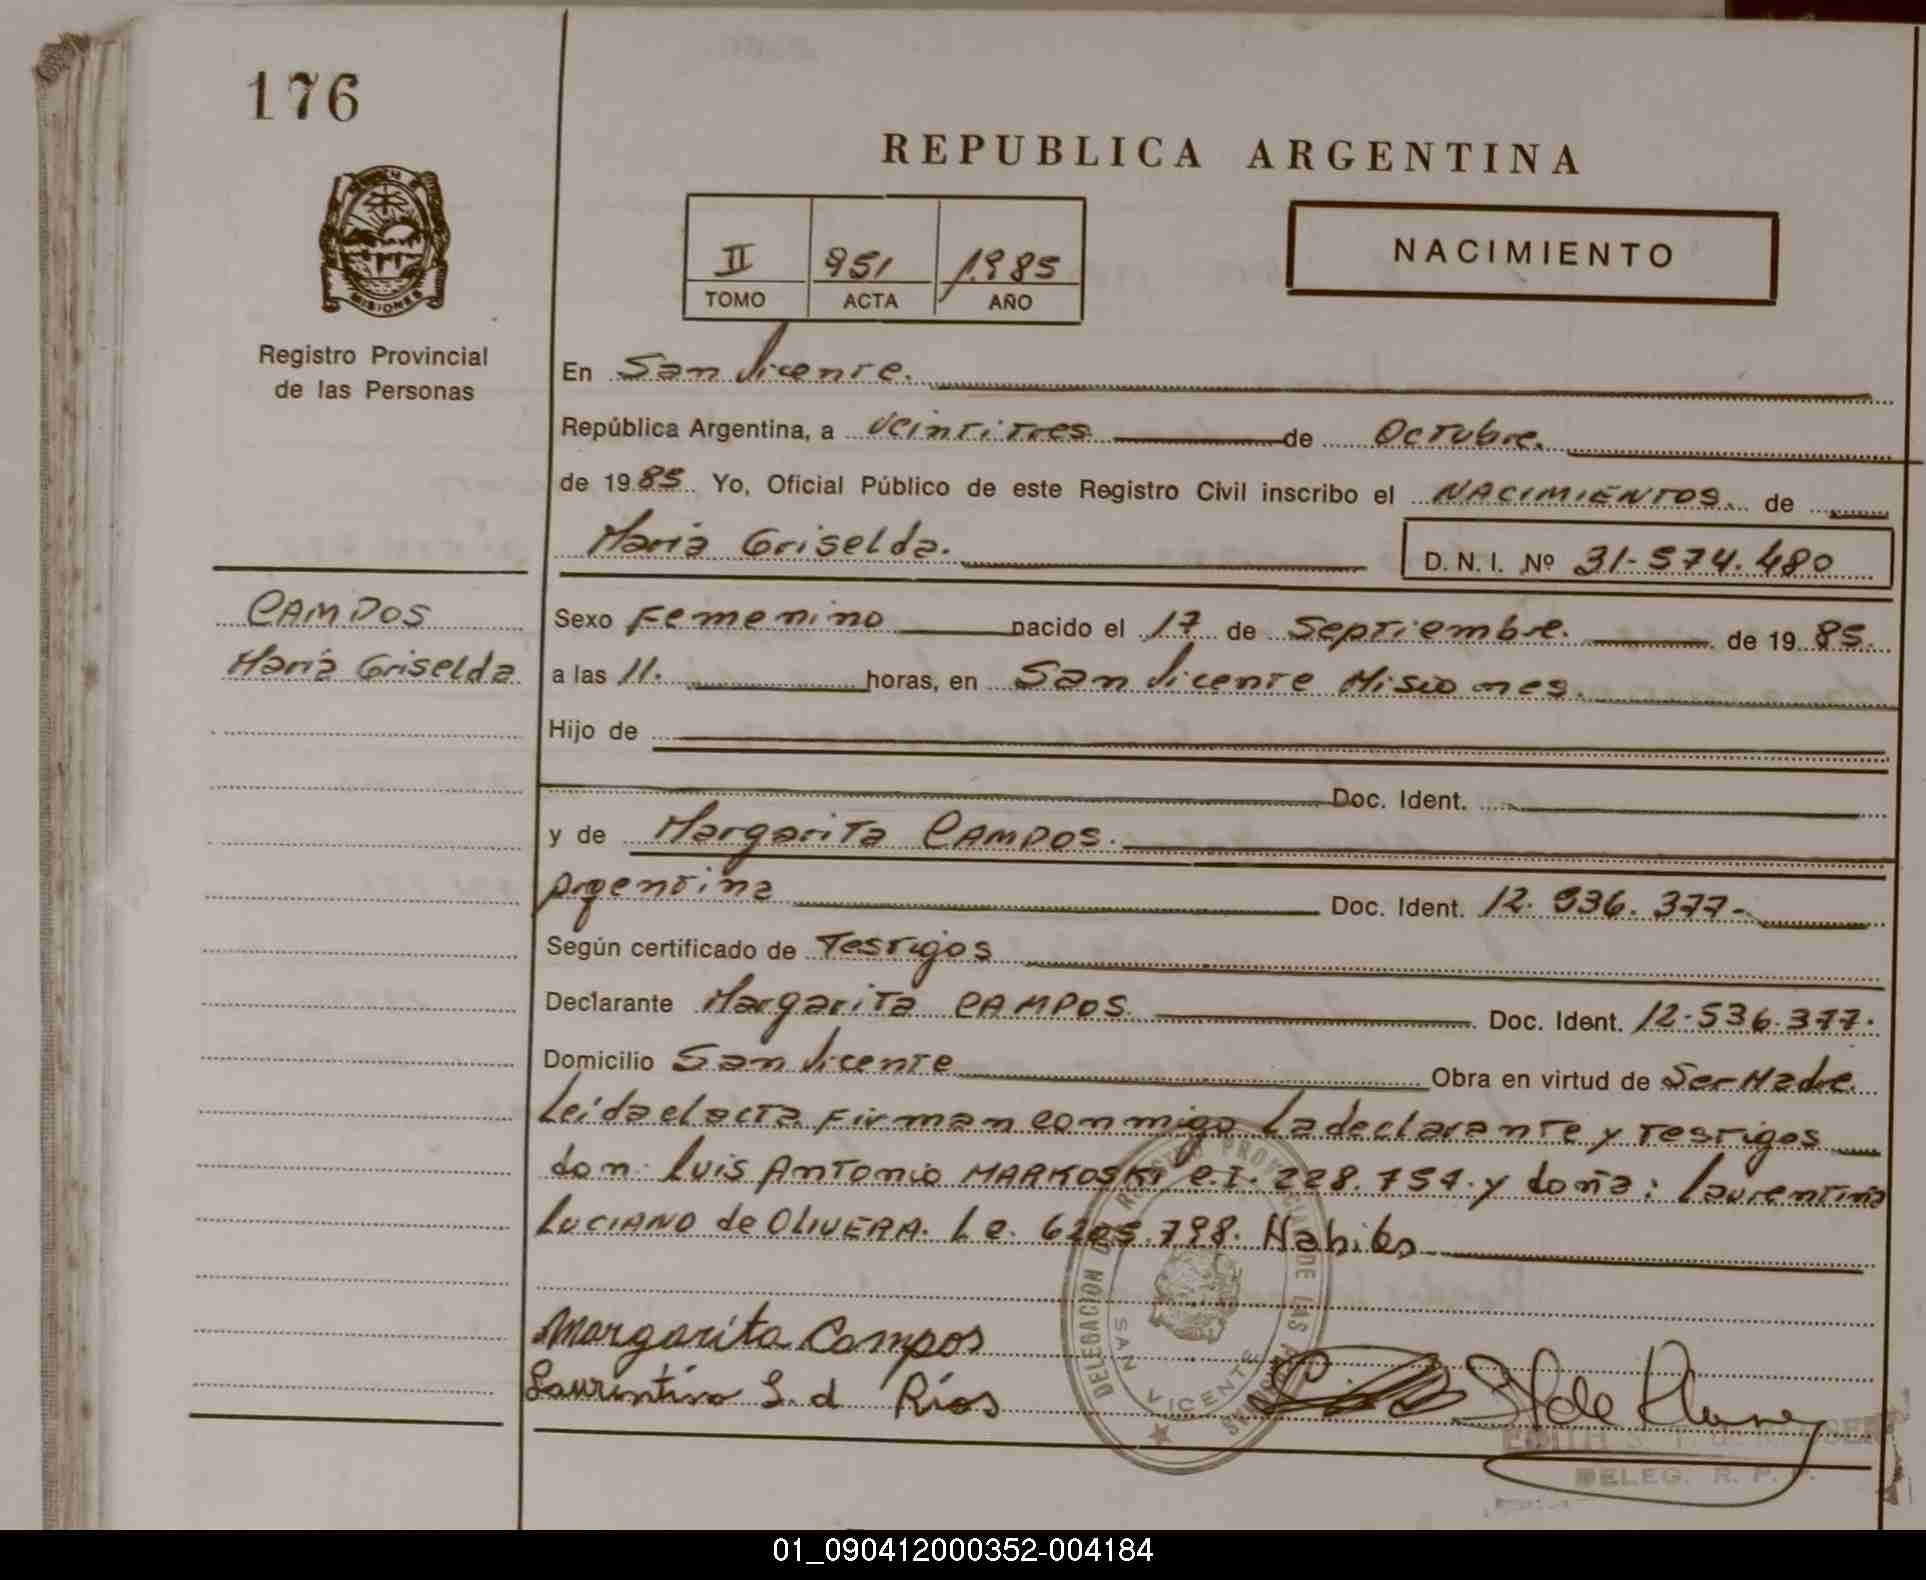 176
REPUBLICA ARGENTINA
MISIONES
Registro Provincial
de las Personas
II 951 1985
TOMO ACTA AÑO
NACIMIENTO
En San Vicente.
República Argentina, a Veintitres de Octubre.
de 1985 Yo, Oficial Público de este Registro Civil inscribo el NACIMIENTOS. de
María Griselda. D. N. I. Nº 31-574.480
CAMPOS
María Griselda
Sexo Femenino nacido el 17 de Septiembre. de 1985.
a las 11. horas, en San Vicente Misiones.
Hijo de
Doc. Ident.
y de Margarita CAMPOS.
Argentina Doc. Ident. 12.536.377-
Según certificado de Testigos
Declarante Margarita CAMPOS Doc. Ident. 12.536.377.
Domicilio San Vicente Obra en virtud de Ser Madre.
Leida el acta firman conmigo la declarante y testigos
don: Luis Antonio MARKOSKI C.I. 228.754. y doña: Laurentina
LUCIANO de OLIVERA. L.C. 6205.798. Habiles
DELEGACION DEL REGISTRO PROVINCIAL DE LAS PERSONAS
SAN VICENTE
Margarita Campos
Laurintino L. d Ríos
EDITH
DELEG. R. P. P.
01_090412000352-004184